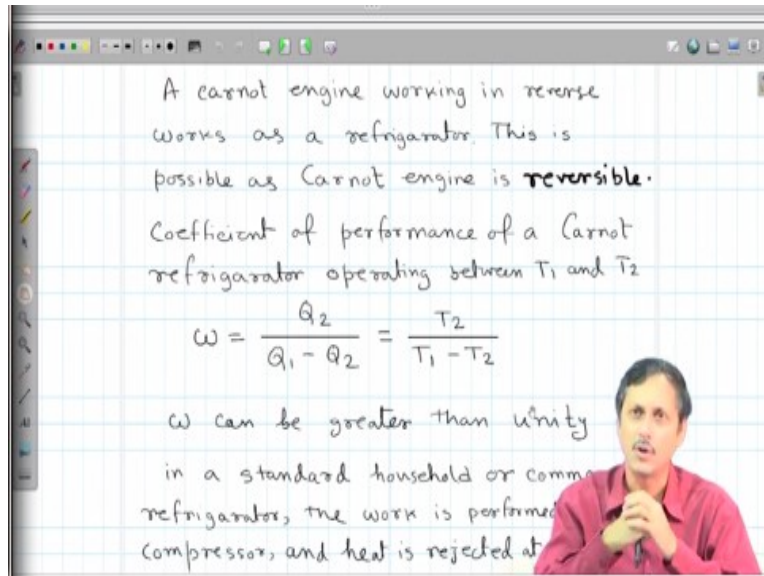 A carnot engine working in reverse
works as a refrigarator. This is
possible as Carnot engine is reversible.
Coefficient of performance of a Carnot
refrigarator operating between T1 and T2
ω = Q2 / (Q1 - Q2) = T2 / (T1 - T2)
ω can be greater than unity
in a standard household or comm
refrigarator, the work is performed
compressor, and heat is rejected at